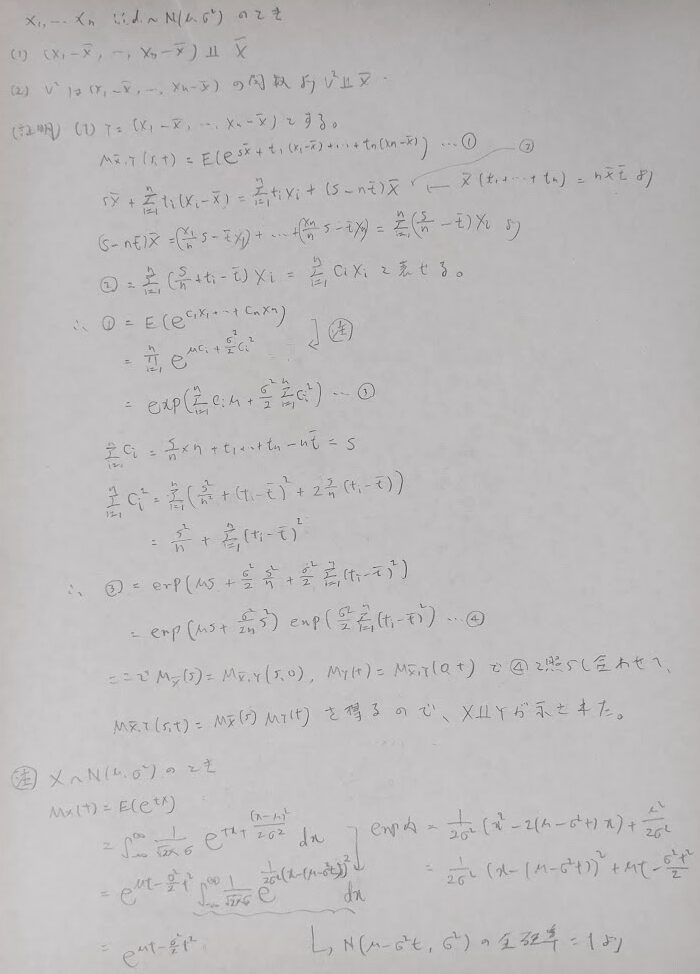 X₁, … Xₙ i.i.d. ~ N(μ, σ²) のとき
(1) (X₁-X̄, …, Xₙ-X̄) ⫫ X̄
(2) V² は (X₁-X̄, …, Xₙ-X̄) の関数より V² ⫫ X̄.
(証明) (1) Y = (X₁-X̄, …, Xₙ-X̄) とする。
M_{X̄,Y}(s,t) = E(e^{sX̄ + t₁(X₁-X̄) + … + tₙ(Xₙ-X̄)}) … ①
sX̄ + Σ_{i=1}^n tᵢ(Xᵢ-X̄) = Σ_{i=1}^n tᵢXᵢ + (s-nt̄)X̄ ② ← X̄(t₁+…+tₙ) = nX̄t̄ より
(s-nt̄)X̄ = (X₁/n s - t̄X₁) + … + (Xₙ/n s - t̄Xₙ) = Σ_{i=1}^n (s/n - t̄)Xᵢ より
② = Σ_{i=1}^n (s/n + tᵢ - t̄)Xᵢ = Σ_{i=1}^n CᵢXᵢ と表せる。
∴ ① = E(e^{C₁X₁+…+CₙXₙ})
= Π_{i=1}^n e^{μCᵢ + σ²/2 Cᵢ²} 注
= exp(Σ_{i=1}^n Cᵢμ + σ²/2 Σ_{i=1}^n Cᵢ²) … ③
Σ_{i=1}^n Cᵢ = s/n × n + t₁+…+tₙ - nt̄ = s
Σ_{i=1}^n Cᵢ² = Σ_{i=1}^n (s²/n² + (tᵢ-t̄)² + 2 s/n (tᵢ-t̄))
= s²/n + Σ_{i=1}^n (tᵢ-t̄)²
∴ ③ = exp(μs + σ²/2 s²/n + σ²/2 Σ_{i=1}^n (tᵢ-t̄)²)
= exp(μs + σ²/2n s²) exp(σ²/2 Σ_{i=1}^n (tᵢ-t̄)²) … ④
ここで M_{X̄}(s) = M_{X̄,Y}(s,0), M_Y(t) = M_{X̄,Y}(0,t) で ④ と照らし合わせて、
M_{X̄,Y}(s,t) = M_{X̄}(s) M_Y(t) を得るので、X⫫Yが示された。
注 X ~ N(μ, σ²) のとき
M_X(t) = E(e^{tX})
= ∫_{-∞}^{∞} 1/(√2π σ) e^{tx + (x-μ)²/2σ²} dx
exp内 = 1/2σ² (x² - 2(μ-σ²t)x) + μ²/2σ²
= e^{μt - σ²/2 t²} ∫_{-∞}^{∞} 1/(√2π σ) e^{1/2σ² (x-(μ-σ²t))²} dx
= 1/2σ² (x-(μ-σ²t))² + μt - σ²t²/2
= e^{μt - σ²/2 t²}
↳ N(μ-σ²t, σ²) の全確率 = 1 より